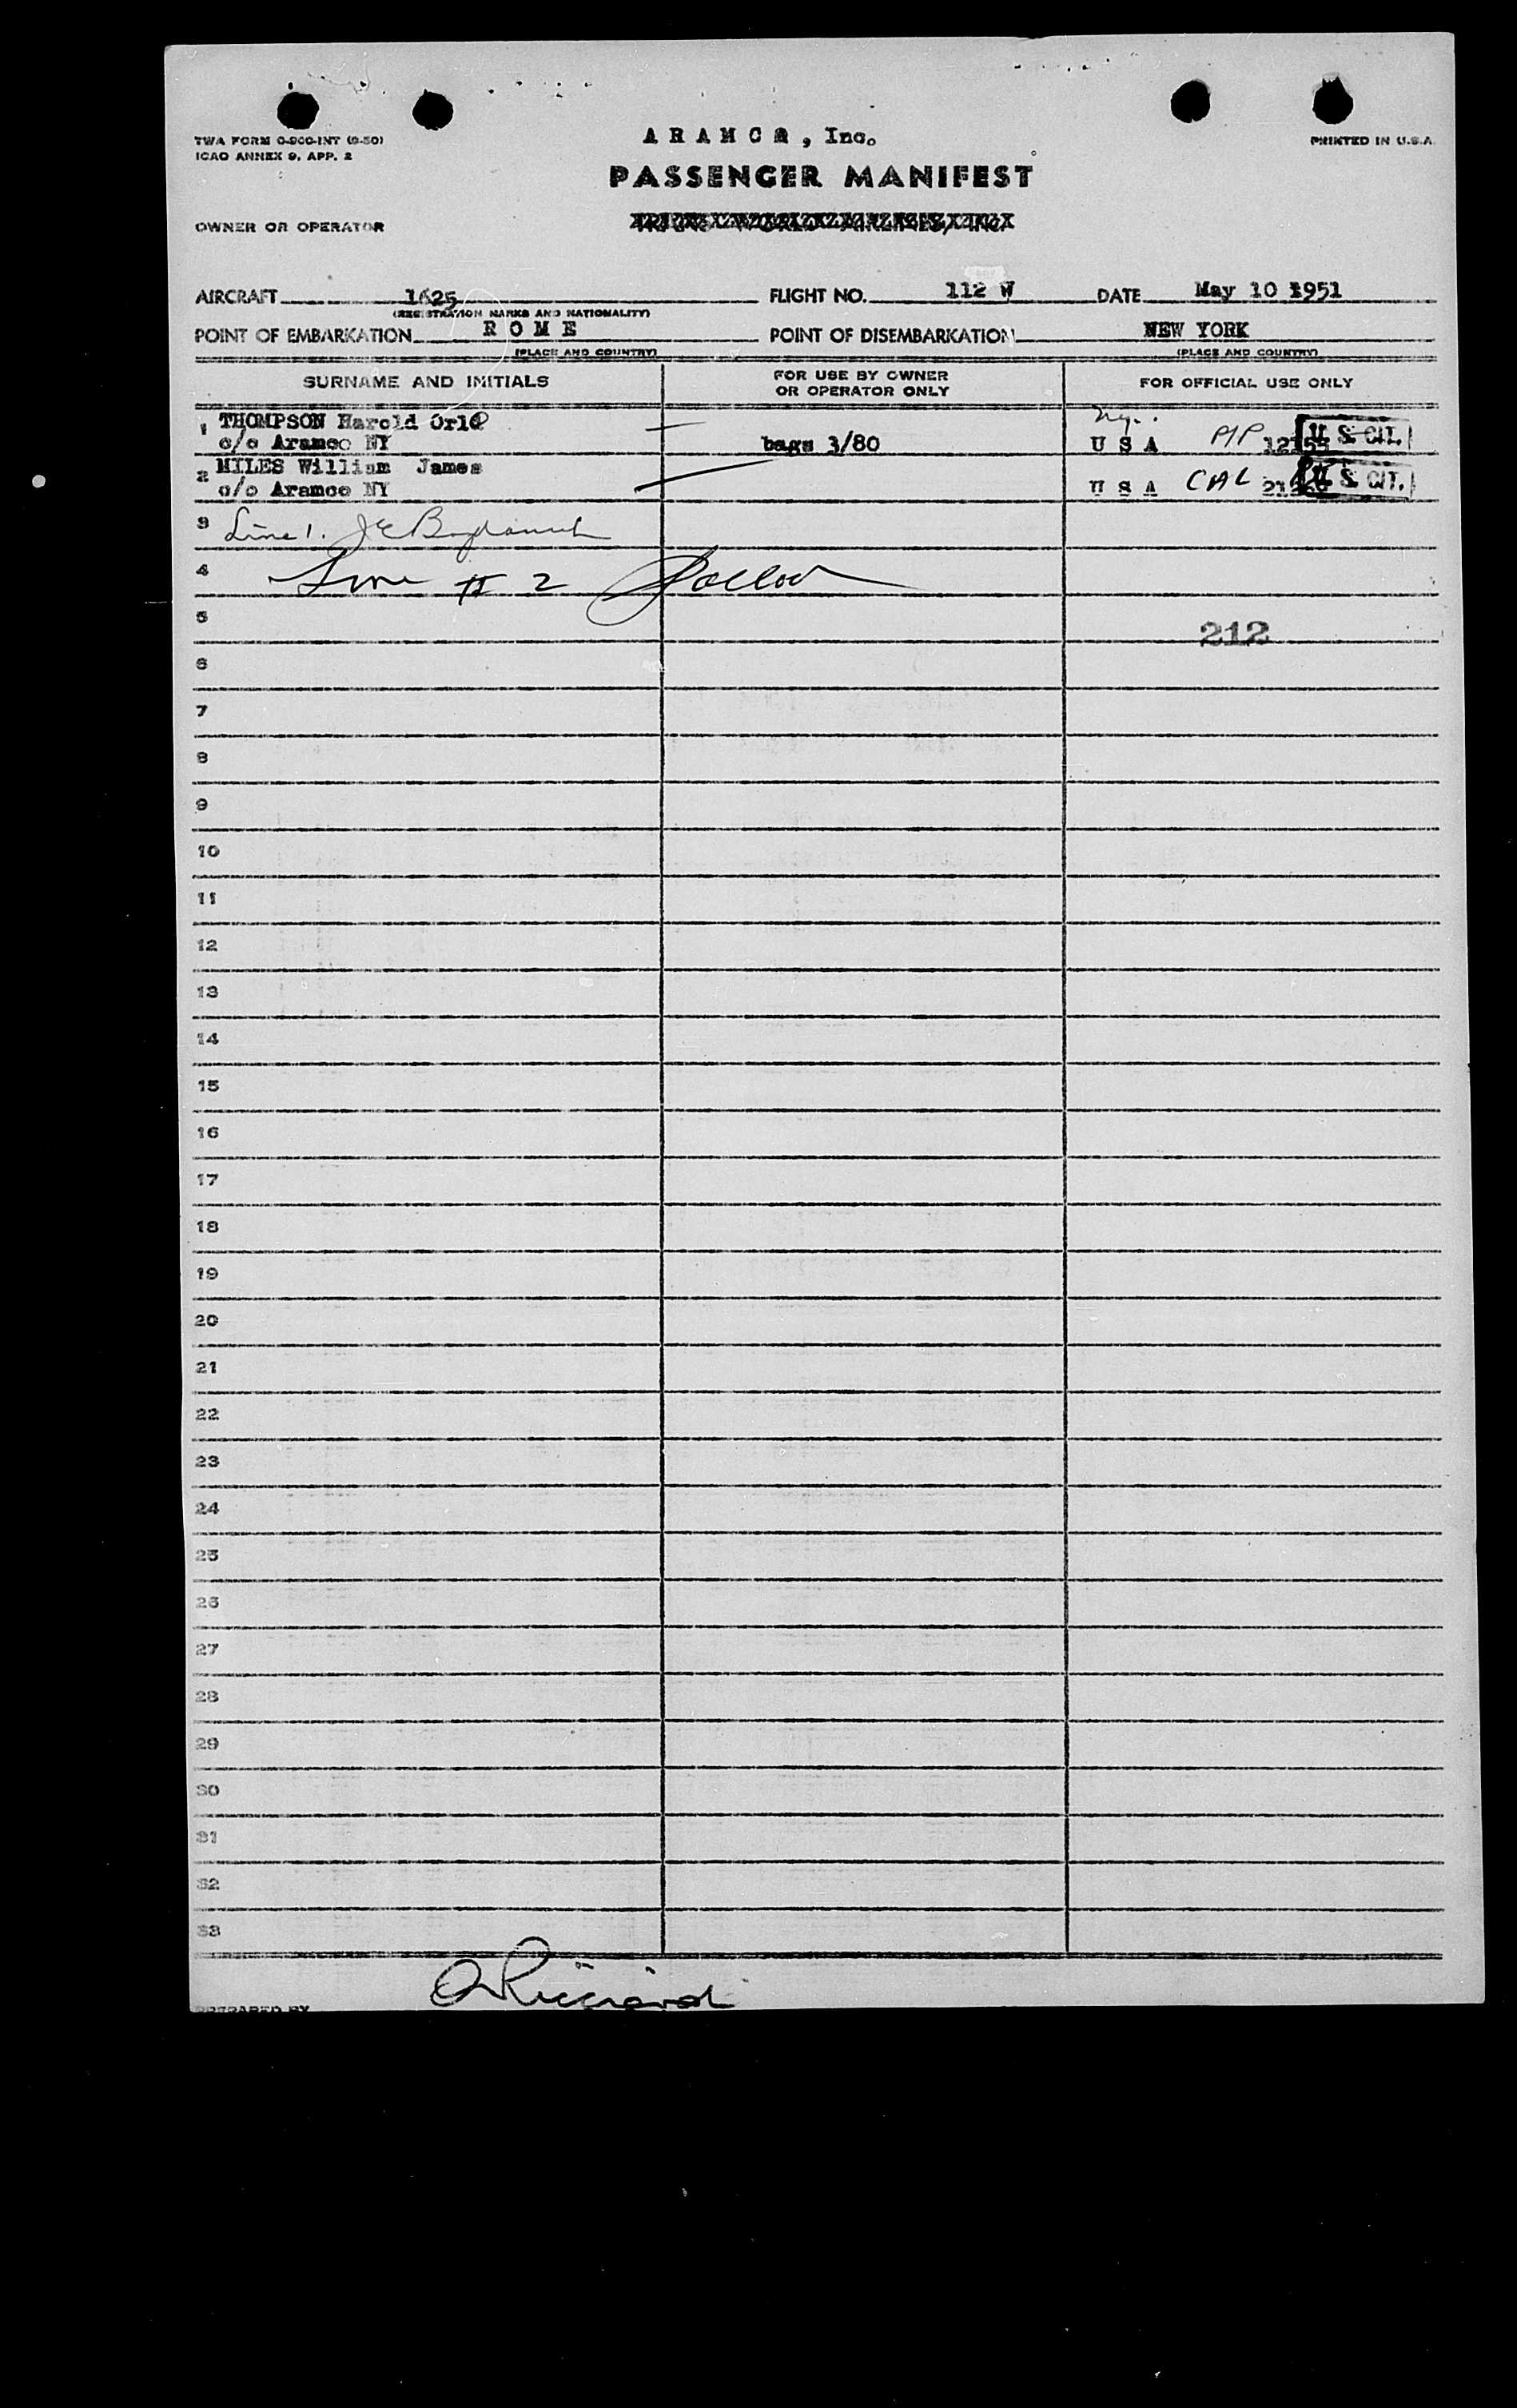 TWA FORM O-900-INT (9-50)
ICAO ANNEX 9, APP. 2
A R A M C O , Inc.
PRINTED IN U.S.A.
PASSENGER MANIFEST
OWNER OR OPERATOR
AIRCRAFT 1625 FLIGHT NO. 112 W DATE May 10 1951
(REGISTRATION MARKS AND NATIONALITY)
POINT OF EMBARKATION R O M E POINT OF DISEMBARKATION NEW YORK
(PLACE AND COUNTRY) (PLACE AND COUNTRY)
SURNAME AND INITIALS FOR USE BY OWNER OR OPERATOR ONLY FOR OFFICIAL USE ONLY
1 THOMPSON Harold
c/o Aramco NY bags 3/80 U S A PIP U.S. CIT.
2 MILES William James
c/o Aramco NY U S A CAL U.S. CIT.
3 Line 1.
4 Line # 2
5
212
6
7
8
9
10
11
12
13
14
15
16
17
18
19
20
21
22
23
24
25
26
27
28
29
30
31
32
33
PREPARED BY